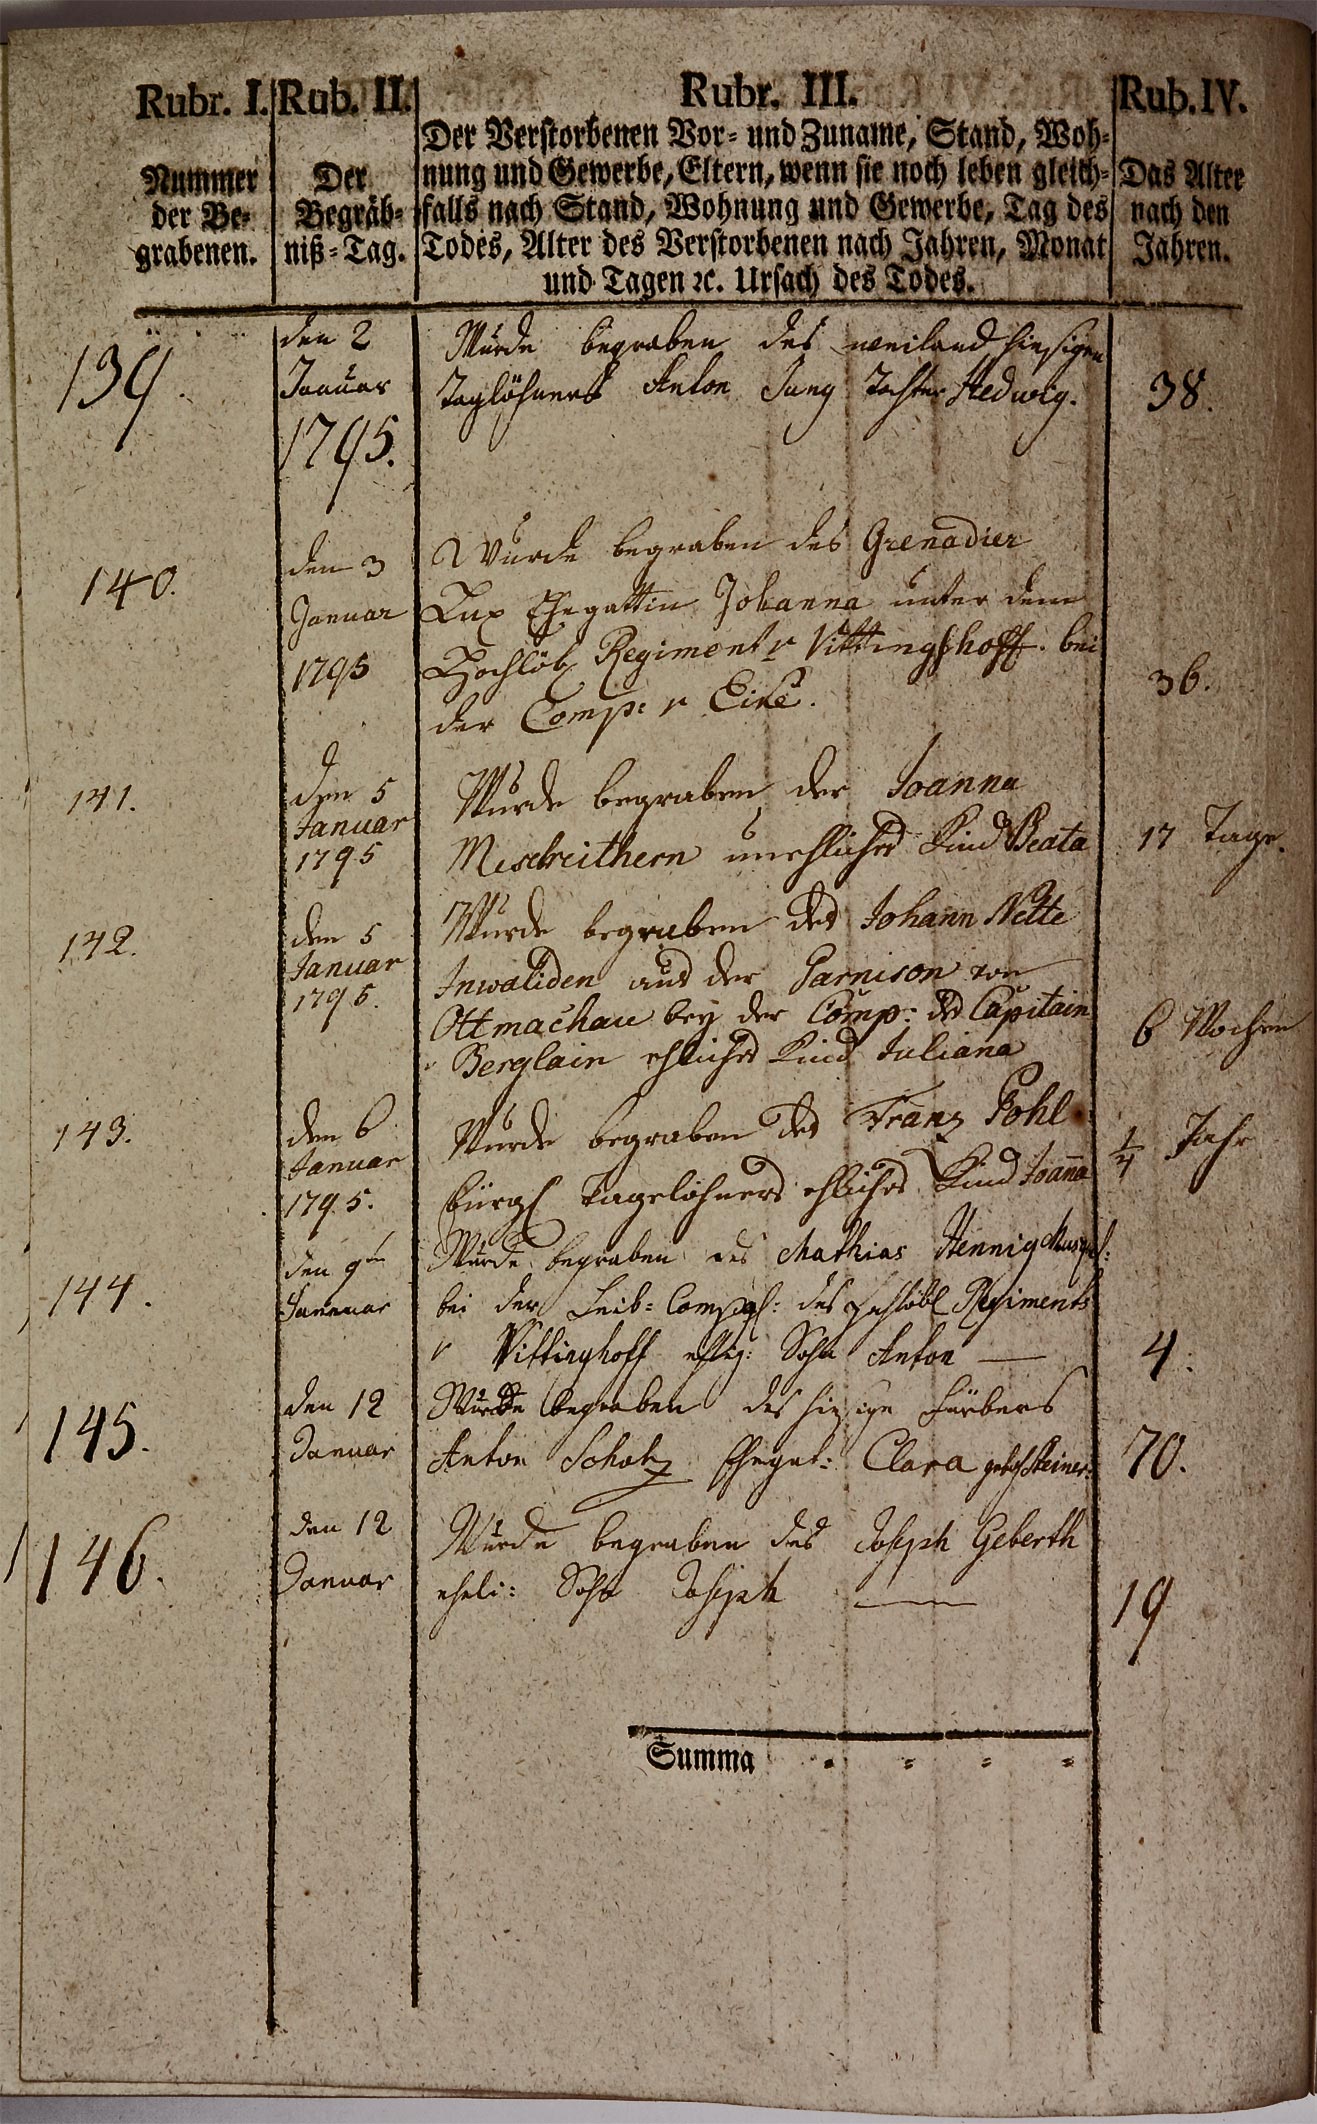 Rubr. I. Rub. II. Rubr. III. Rub. IV.
Nummer der Be= grabenen.
Der Begräb= niß=Tag.
Der Verstorbenen Vor= und Zuname, Stand, Woh=
nung und Gewerbe, Eltern, wenn sie noch leben gleich=
falls nach Stand, Wohnung und Gewerbe, Tag des
Todes, Alter des Verstorbenen nach Jahren, Monat
und Tagen ꝛc. Ursach des Todes.
Das Alter nach den Jahren.
139.
den 2
Januar
1795.
Wurde begraben des weiland hiesigen
Taglöhners Anton Jung Tochter Hedwig.
38.
140.
den 3
Januar
1795
Wurde begraben des Grenadier
Lux Ehegattin Johanna unter dem
Hochlöb. Regiment v Vittingshoff. bei
der Comp: v
36.
141.
den 5
Januar
1795
Wurde begraben der Joanna
unehliches Kind Beata
17 Tage.
142.
den 5
Januar
1795.
Wurde begraben des Johann Nette
Invaliden aus der Garnison von
Ottmachau bey der Comp: des Capitain
v Berglain ehliches Kind Juliana
6 Wochen
143.
den 6
Januar
1795.
Wurde begraben des Franz Pohl
bürgl Tagelöhners ehliches Kind Joanna
1/4 Jahr
144.
den 9ten
Januar
Wurde begraben des Mathias Hennig
bei der Leib= Compgl: des hochlöbl Regiments
v Vittinghoff ehlig: Sohn Anton —
4.
145.
den 12
Januar
Wurde begraben des hiesige Färbers
Anton Scholz Ehegat: Clara
70.
146.
den 12
Januar
Wurde begraben des Joseph Geberth
eheli: Sohn Joseph —
19
Summa